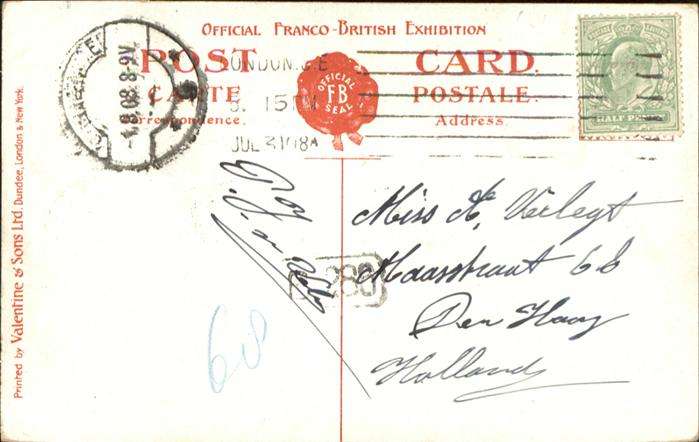 OFFICIAL FRANCO-BRITISH EXHIBITION
POST CARD.
CARTE POSTALE.
Correspondence. Address.
OFFICIAL
F B
SEAL
LONDON. S.E
8. 15PM
JUL 31 08
1.8.08.8-9V.
HALF PENNY
Miss
Maasstraat 68
Den Haag
Holland
280
68
Printed by Valentine & Sons Ltd. Dundee, London & New York.